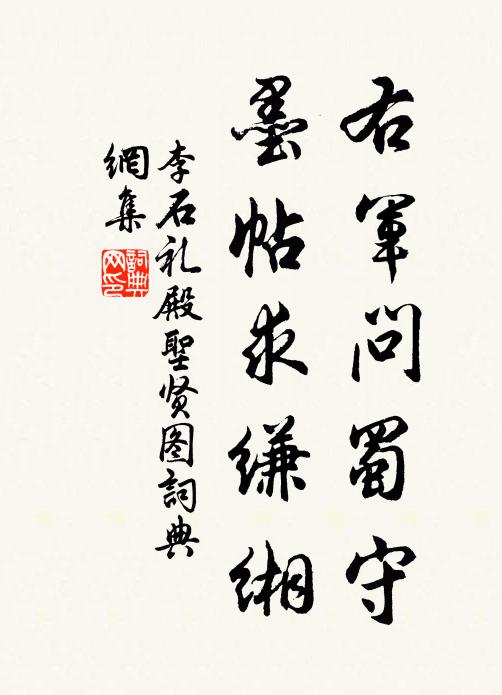 右军問蜀守
墨帖求缣缃
李石礼殿聖贤图詞典
網集
詞典
网印